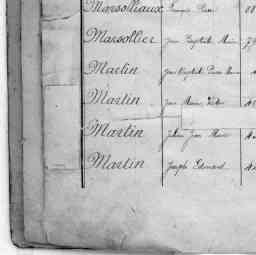 Marsolliaux François Pierre
Marsollier Jean Baptiste Marie
Martin Jean Baptiste Pierre
Martin Jean Marie
Martin Julien Jean Marie
Martin Joseph Edouard